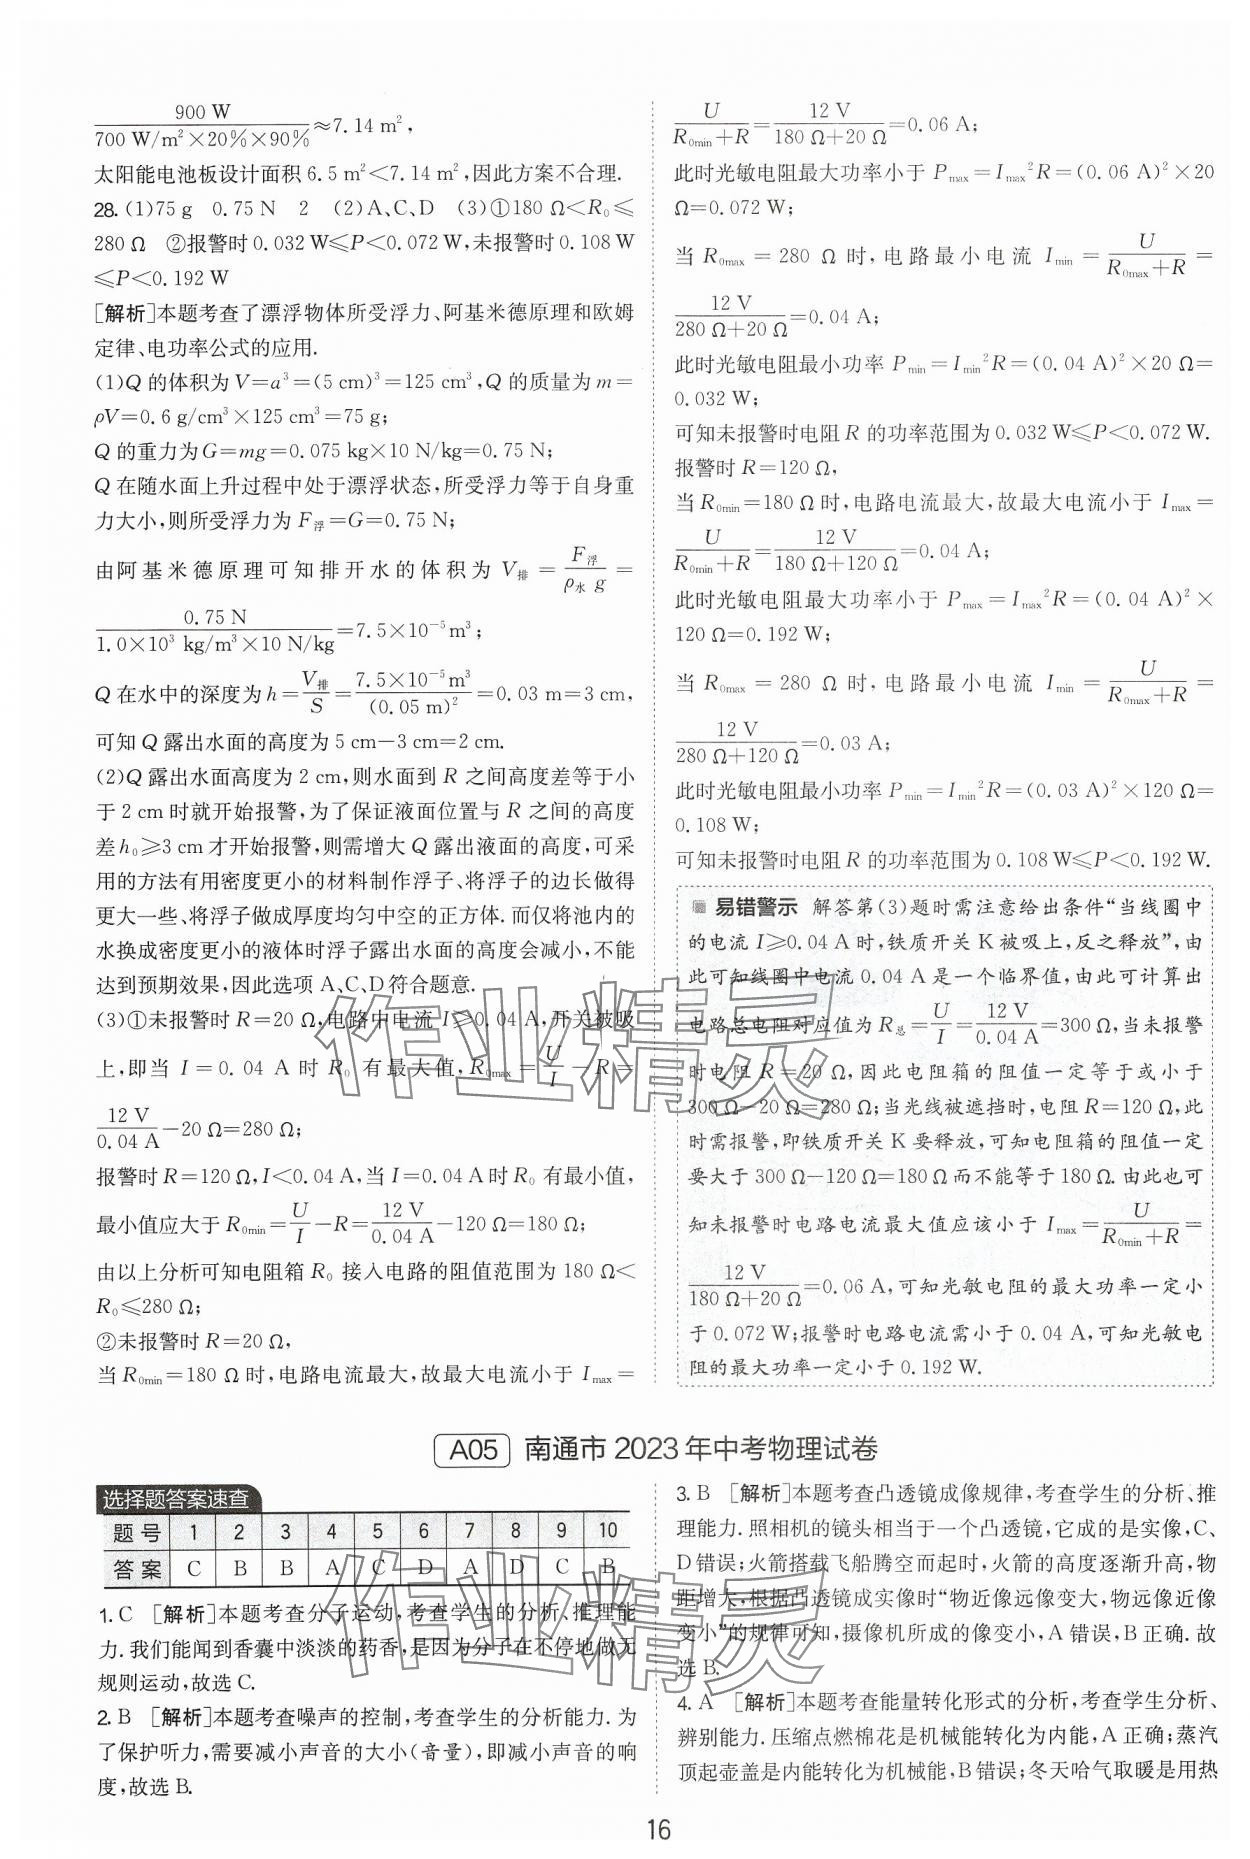 900 W / 700 W/m²×20%×90% ≈7.14 m²,
太阳能电池板设计面积 6.5 m²<7.14 m²,因此方案不合理.
28. (1)75 g 0.75 N 2 (2)A、C、D (3)①180 Ω<R₀≤
280 Ω ②报警时 0.032 W≤P<0.072 W,未报警时 0.108 W
≤P<0.192 W
[解析]本题考查了漂浮物体所受浮力、阿基米德原理和欧姆
定律、电功率公式的应用.
(1)Q 的体积为 V=a³=(5 cm)³=125 cm³,Q 的质量为 m=
ρV=0.6 g/cm³×125 cm³=75 g;
Q 的重力为 G=mg=0.075 kg×10 N/kg=0.75 N;
Q 在随水面上升过程中处于漂浮状态,所受浮力等于自身重
力大小,则所受浮力为 F浮=G=0.75 N;
由阿基米德原理可知排开水的体积为 V排 = F浮 / ρ水 g =
0.75 N / 1.0×10³ kg/m³×10 N/kg =7.5×10⁻⁵ m³;
Q 在水中的深度为 h= V排 / S = 7.5×10⁻⁵ m³ / (0.05 m)² =0.03 m=3 cm,
可知 Q 露出水面的高度为 5 cm-3 cm=2 cm.
(2)Q 露出水面高度为 2 cm,则水面到 R 之间高度差等于小
于 2 cm 时就开始报警,为了保证液面位置与 R 之间的高度
差 h₀≥3 cm 才开始报警,则需增大 Q 露出液面的高度,可采
用的方法有用密度更小的材料制作浮子、将浮子的边长做得
更大一些、将浮子做成厚度均匀中空的正方体.而仅将池内的
水换成密度更小的液体时浮子露出水面的高度会减小,不能
达到预期效果,因此选项 A、C、D 符合题意.
(3)①未报警时 R=20 Ω,电路中电流 I≥0.04 A,开关被吸
上,即当 I=0.04 A 时 R₀ 有最大值,R0max = U / I -R=
12 V / 0.04 A -20 Ω=280 Ω;
报警时 R=120 Ω,I<0.04 A,当 I=0.04 A 时 R₀ 有最小值,
最小值应大于 R0min = U / I -R= 12 V / 0.04 A -120 Ω=180 Ω;
由以上分析可知电阻箱 R₀ 接入电路的阻值范围为 180 Ω<
R₀≤280 Ω;
②未报警时 R=20 Ω,
当 R0min=180 Ω 时,电路电流最大,故最大电流小于 Imax=
U / R0min+R = 12 V / 180 Ω+20 Ω =0.06 A;
此时光敏电阻最大功率小于 Pmax=Imax²R=(0.06 A)²×20
Ω=0.072 W;
当 R0max = 280 Ω 时,电路最小电流 Imin = U / R0max+R =
12 V / 280 Ω+20 Ω =0.04 A;
此时光敏电阻最小功率 Pmin=Imin²R=(0.04 A)²×20 Ω=
0.032 W;
可知未报警时电阻 R 的功率范围为 0.032 W≤P<0.072 W.
报警时 R=120 Ω,
当 R0min=180 Ω 时,电路电流最大,故最大电流小于 Imax=
U / R0min+R = 12 V / 180 Ω+120 Ω =0.04 A;
此时光敏电阻最大功率小于 Pmax=Imax²R=(0.04 A)²×
120 Ω=0.192 W;
当 R0max = 280 Ω 时,电路最小电流 Imin = U / R0max+R =
12 V / 280 Ω+120 Ω =0.03 A;
此时光敏电阻最小功率 Pmin=Imin²R=(0.03 A)²×120 Ω=
0.108 W;
可知未报警时电阻 R 的功率范围为 0.108 W≤P<0.192 W.
易错警示 解答第(3)题时需注意给出条件“当线圈中
的电流 I≥0.04 A 时,铁质开关 K 被吸上,反之释放”,由
此可知线圈中电流 0.04 A 是一个临界值,由此可计算出
电路总电阻对应值为 R总= U / I = 12 V / 0.04 A =300 Ω,当未报警
时电阻 R=20 Ω,因此电阻箱的阻值一定等于或小于
300 Ω-20 Ω=280 Ω;当光线被遮挡时,电阻 R=120 Ω,此
时需报警,即铁质开关 K 要释放,可知电阻箱的阻值一定
要大于 300 Ω-120 Ω=180 Ω 而不能等于 180 Ω.由此也可
知未报警时电路电流最大值应该小于 Imax = U / R0min+R =
12 V / 180 Ω+20 Ω =0.06 A,可知光敏电阻的最大功率一定小
于 0.072 W;报警时电路电流需小于 0.04 A,可知光敏电
阻的最大功率一定小于 0.192 W.
A05 南通市 2023 年中考物理试卷
选择题答案速查
题号 1 2 3 4 5 6 7 8 9 10
答案 C B B A C D A D C B
1. C [解析]本题考查分子运动,考查学生的分析、推理能
力.我们能闻到香囊中淡淡的药香,是因为分子在不停地做无
规则运动,故选 C.
2. B [解析]本题考查噪声的控制,考查学生的分析能力.为
了保护听力,需要减小声音的大小(音量),即减小声音的响
度,故选 B.
3. B [解析]本题考查凸透镜成像规律,考查学生的分析、推
理能力.照相机的镜头相当于一个凸透镜,它成的是实像,C、
D 错误;火箭搭载飞船腾空而起时,火箭的高度逐渐升高,物
距增大,根据凸透镜成实像时“物近像远像变大,物远像近像
变小”的规律可知,摄像机所成的像变小,A 错误,B 正确.故
选 B.
4. A [解析]本题考查能量转化形式的分析,考查学生分析、
辨别能力.压缩点燃棉花是机械能转化为内能,A 正确;蒸汽
顶起壶盖是内能转化为机械能,B 错误;冬天哈气取暖是用热
16
作业精灵
作业精灵